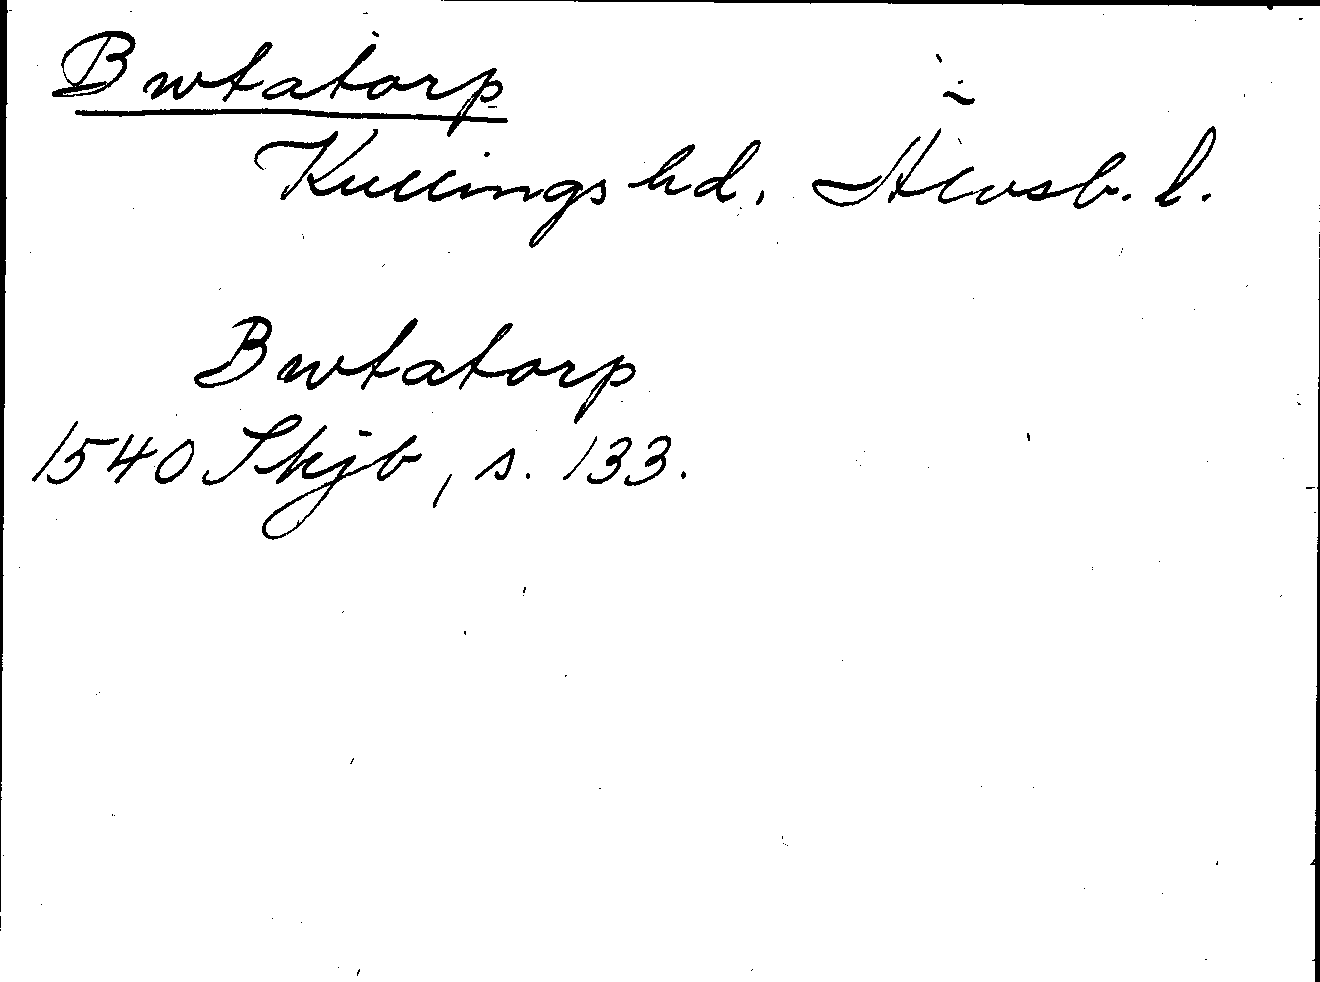 Bwtatorp
Kullings hd. Älvsb. l.
Bwtatorp
1540 Skjb, s. 133.